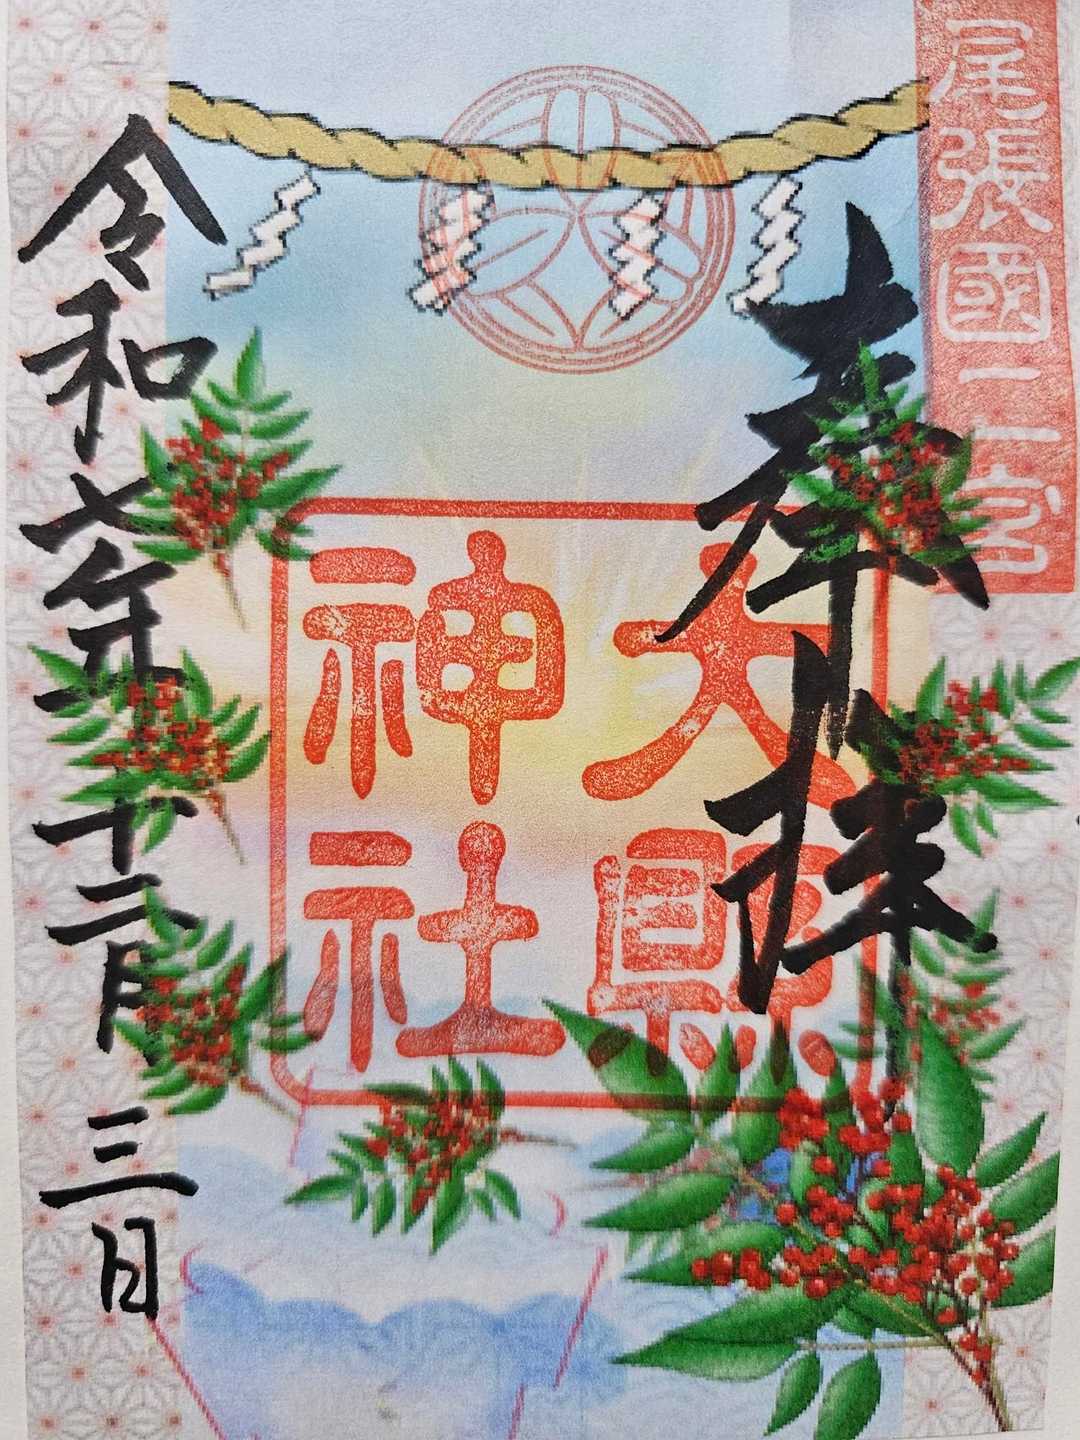 尾張國二宮
奉拝
大縣
神社
令和七年十二月三日